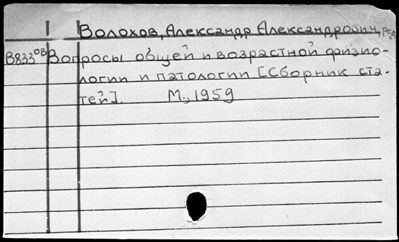 Волохов, Александр Александрович, ред.
В833ов Вопросы общей и возрастной физио-
логии и патологии [Сборник ста-
тей]. М., 1959